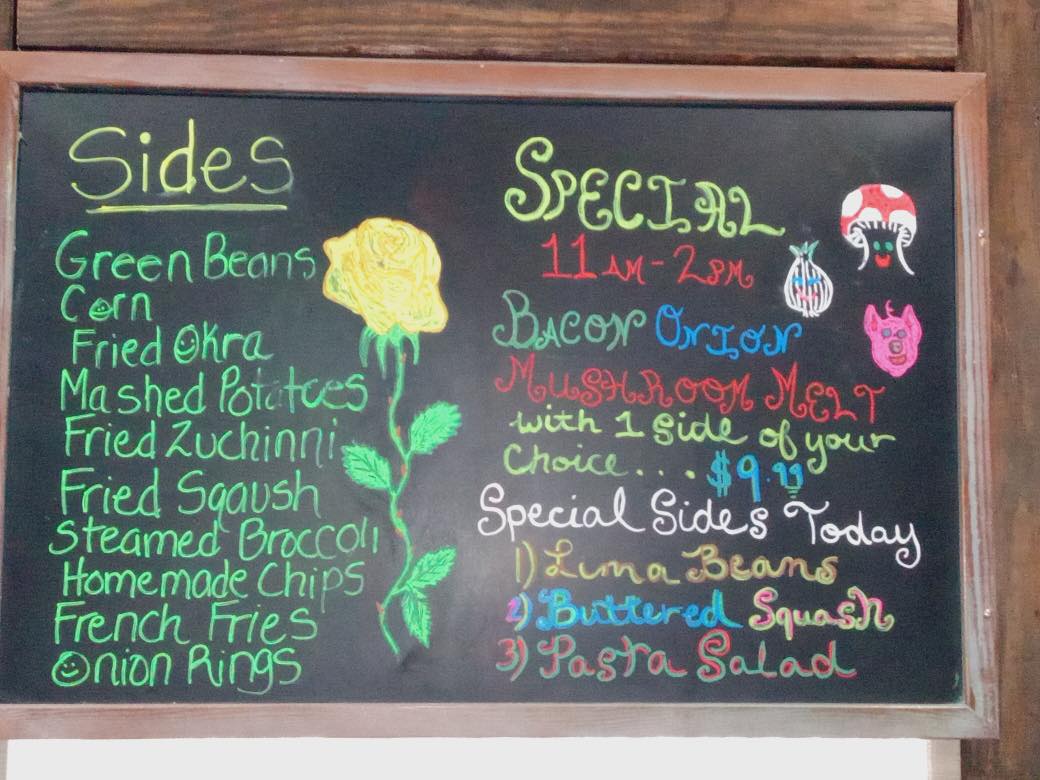 Sides
Green Beans
Corn
Fried Okra
Mashed Potatoes
Fried Zuchinni
Fried Sqaush
Steamed Broccoli
Homemade Chips
French Fries
Onion Rings
SPECIAL
11 AM - 2 PM
BACON ONION
MUSHROOM MELT
with 1 Side of your
Choice... $9.99
Special Sides Today
1) Lima Beans
2) Buttered Squash
3) Pasta Salad